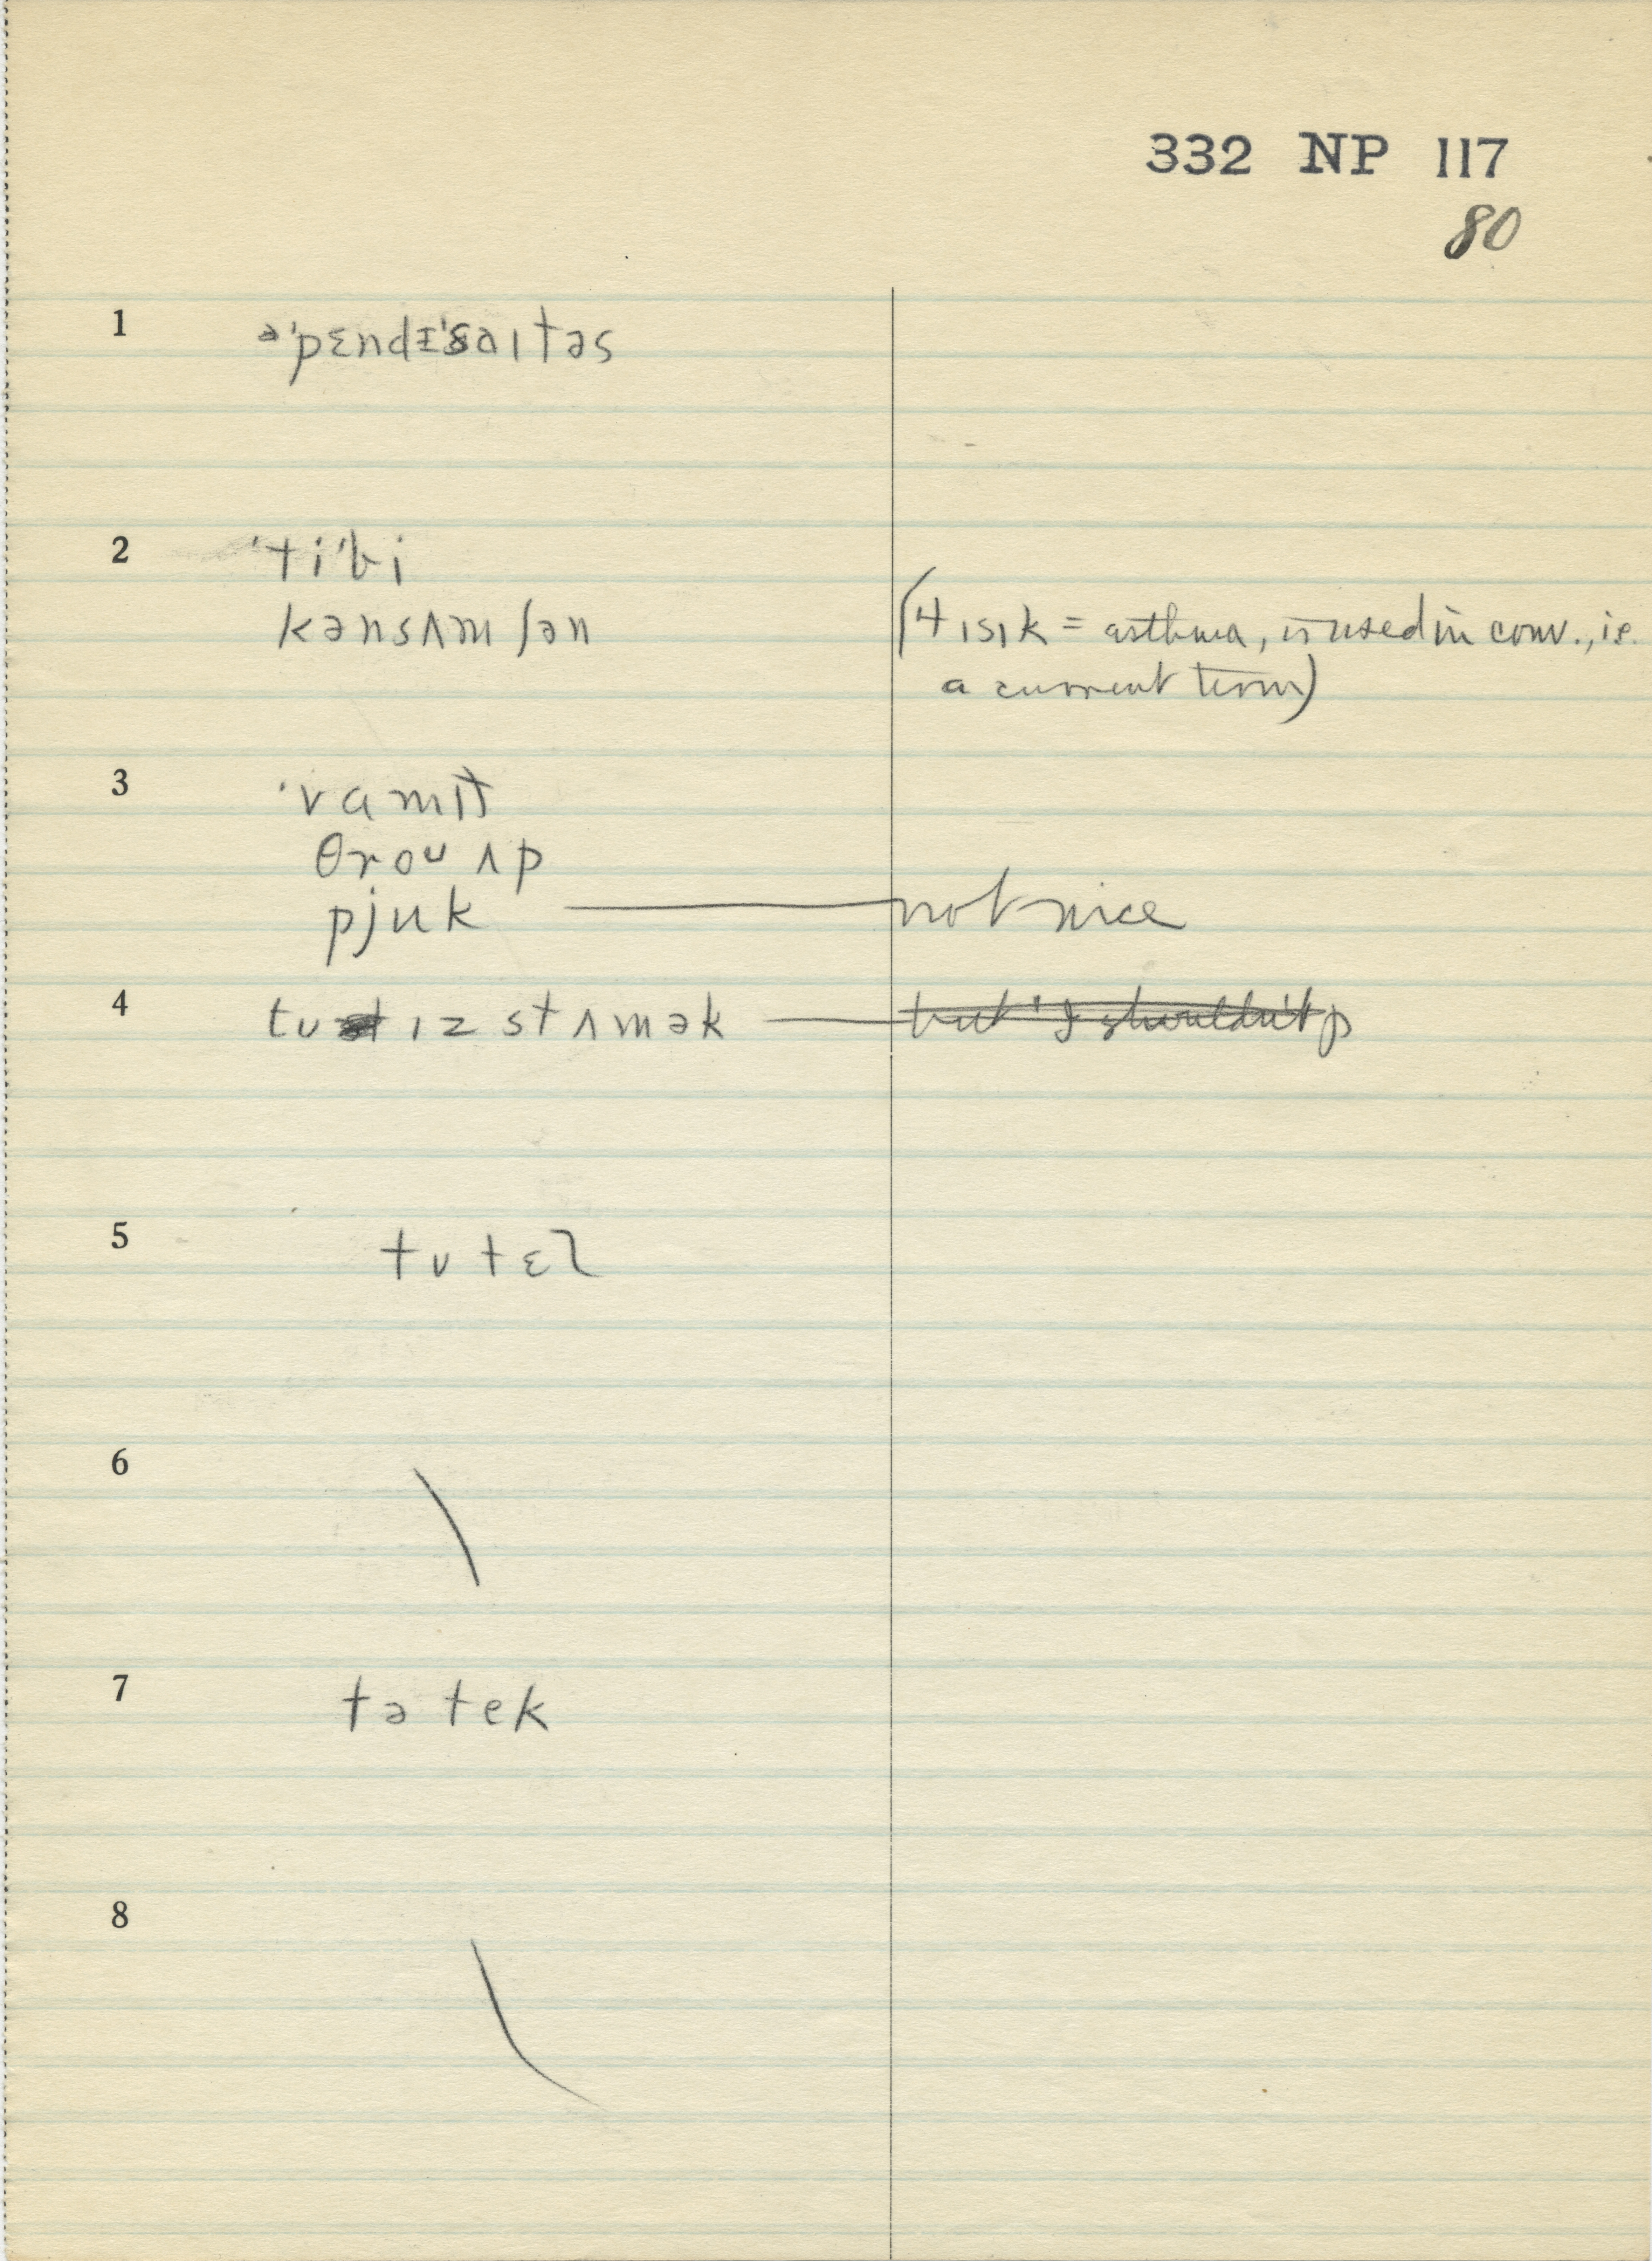 332 NP 117
80
1 əˈpɛndɪˈsaɪtəs
2 ˈtiˈbi
kənsʌmʃən
(tɪsɪk = asthma, is used in conv., i.e.
a current term)
3 ˈvɑmɪt
θroʊ ʌp
pjuk — not nice
4 tu ɪz stʌmək — but I shouldn't p
5 tʊ tɛl
6
7 tə tek
8